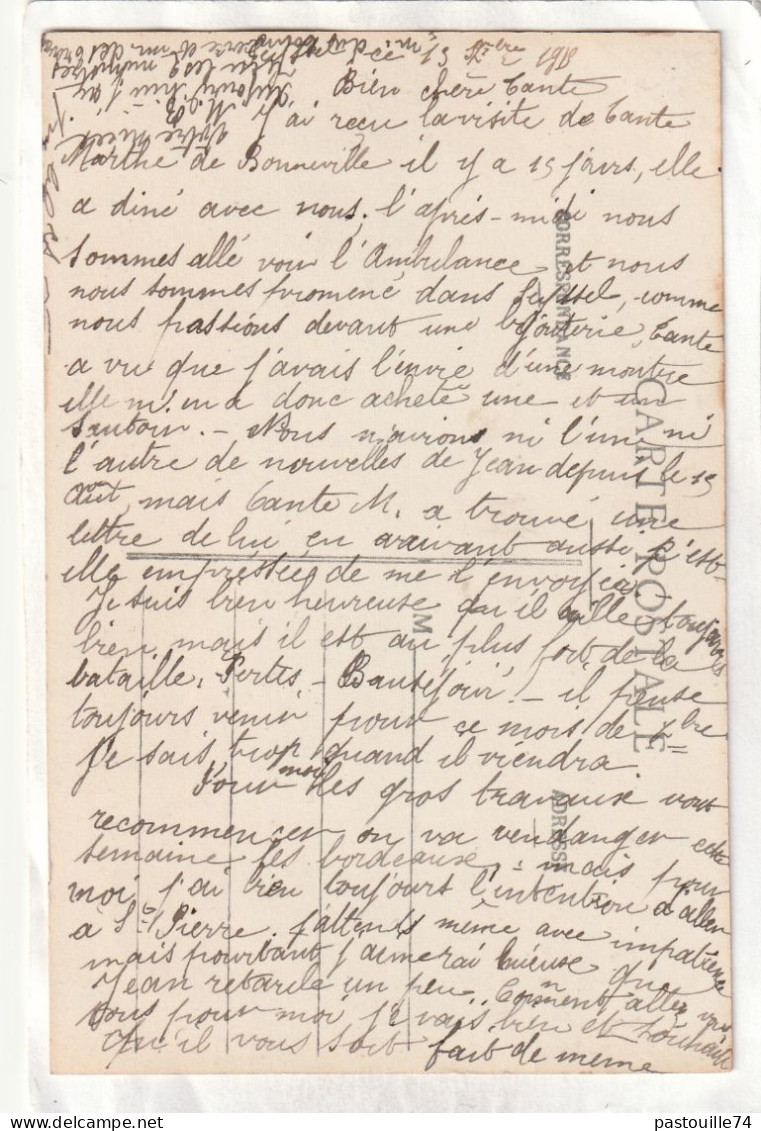 ce 13 9bre 1918
Bien chère Tante
J'ai reçu la visite de Tante
Marthe de Bonneville il y a 15 jours, elle
a diné avec nous, l'après-midi nous
sommes allé voir l'Ambulance et nous
nous sommes promené dans Seyssel, comme
nous passions devant une bijouterie, Tante
a vu que j'avais l'envie d'une montre
elle m'en a donc acheté une et un
Sautoir. - Nous n'avions ni l'une ni
l'autre de nouvelles de Jean depuis le 15
Août, mais Tante M. a trouvé une
lettre de lui en arrivant aussi s'est-
elle empréssée de me l'envoyer. -
Je suis bien heureuse qu'il aille toujours
bien, mais il est au plus fort de la
bataille, Pertes - Beauséjour - il pense
toujours venir pour ce mois de Xbre
Je sais trop quand il viendra.
Pour moi les gros travaux vont
recommencer on va vendanger cette
semaine les bordeaux, - mais pour
moi j'ai bien toujours l'intention d'aller
à St Pierre. J'attends même avec impatience
mais pourtant j'aimerai mieux que
Jean retarde un peu. Comment allez vous
tous pour moi je vais bien et souhaite
qu'il vous soit fait de même
votre nièce
CARTE POSTALE
CORRESPONDANCE
ADRESSE
M
pastouille74